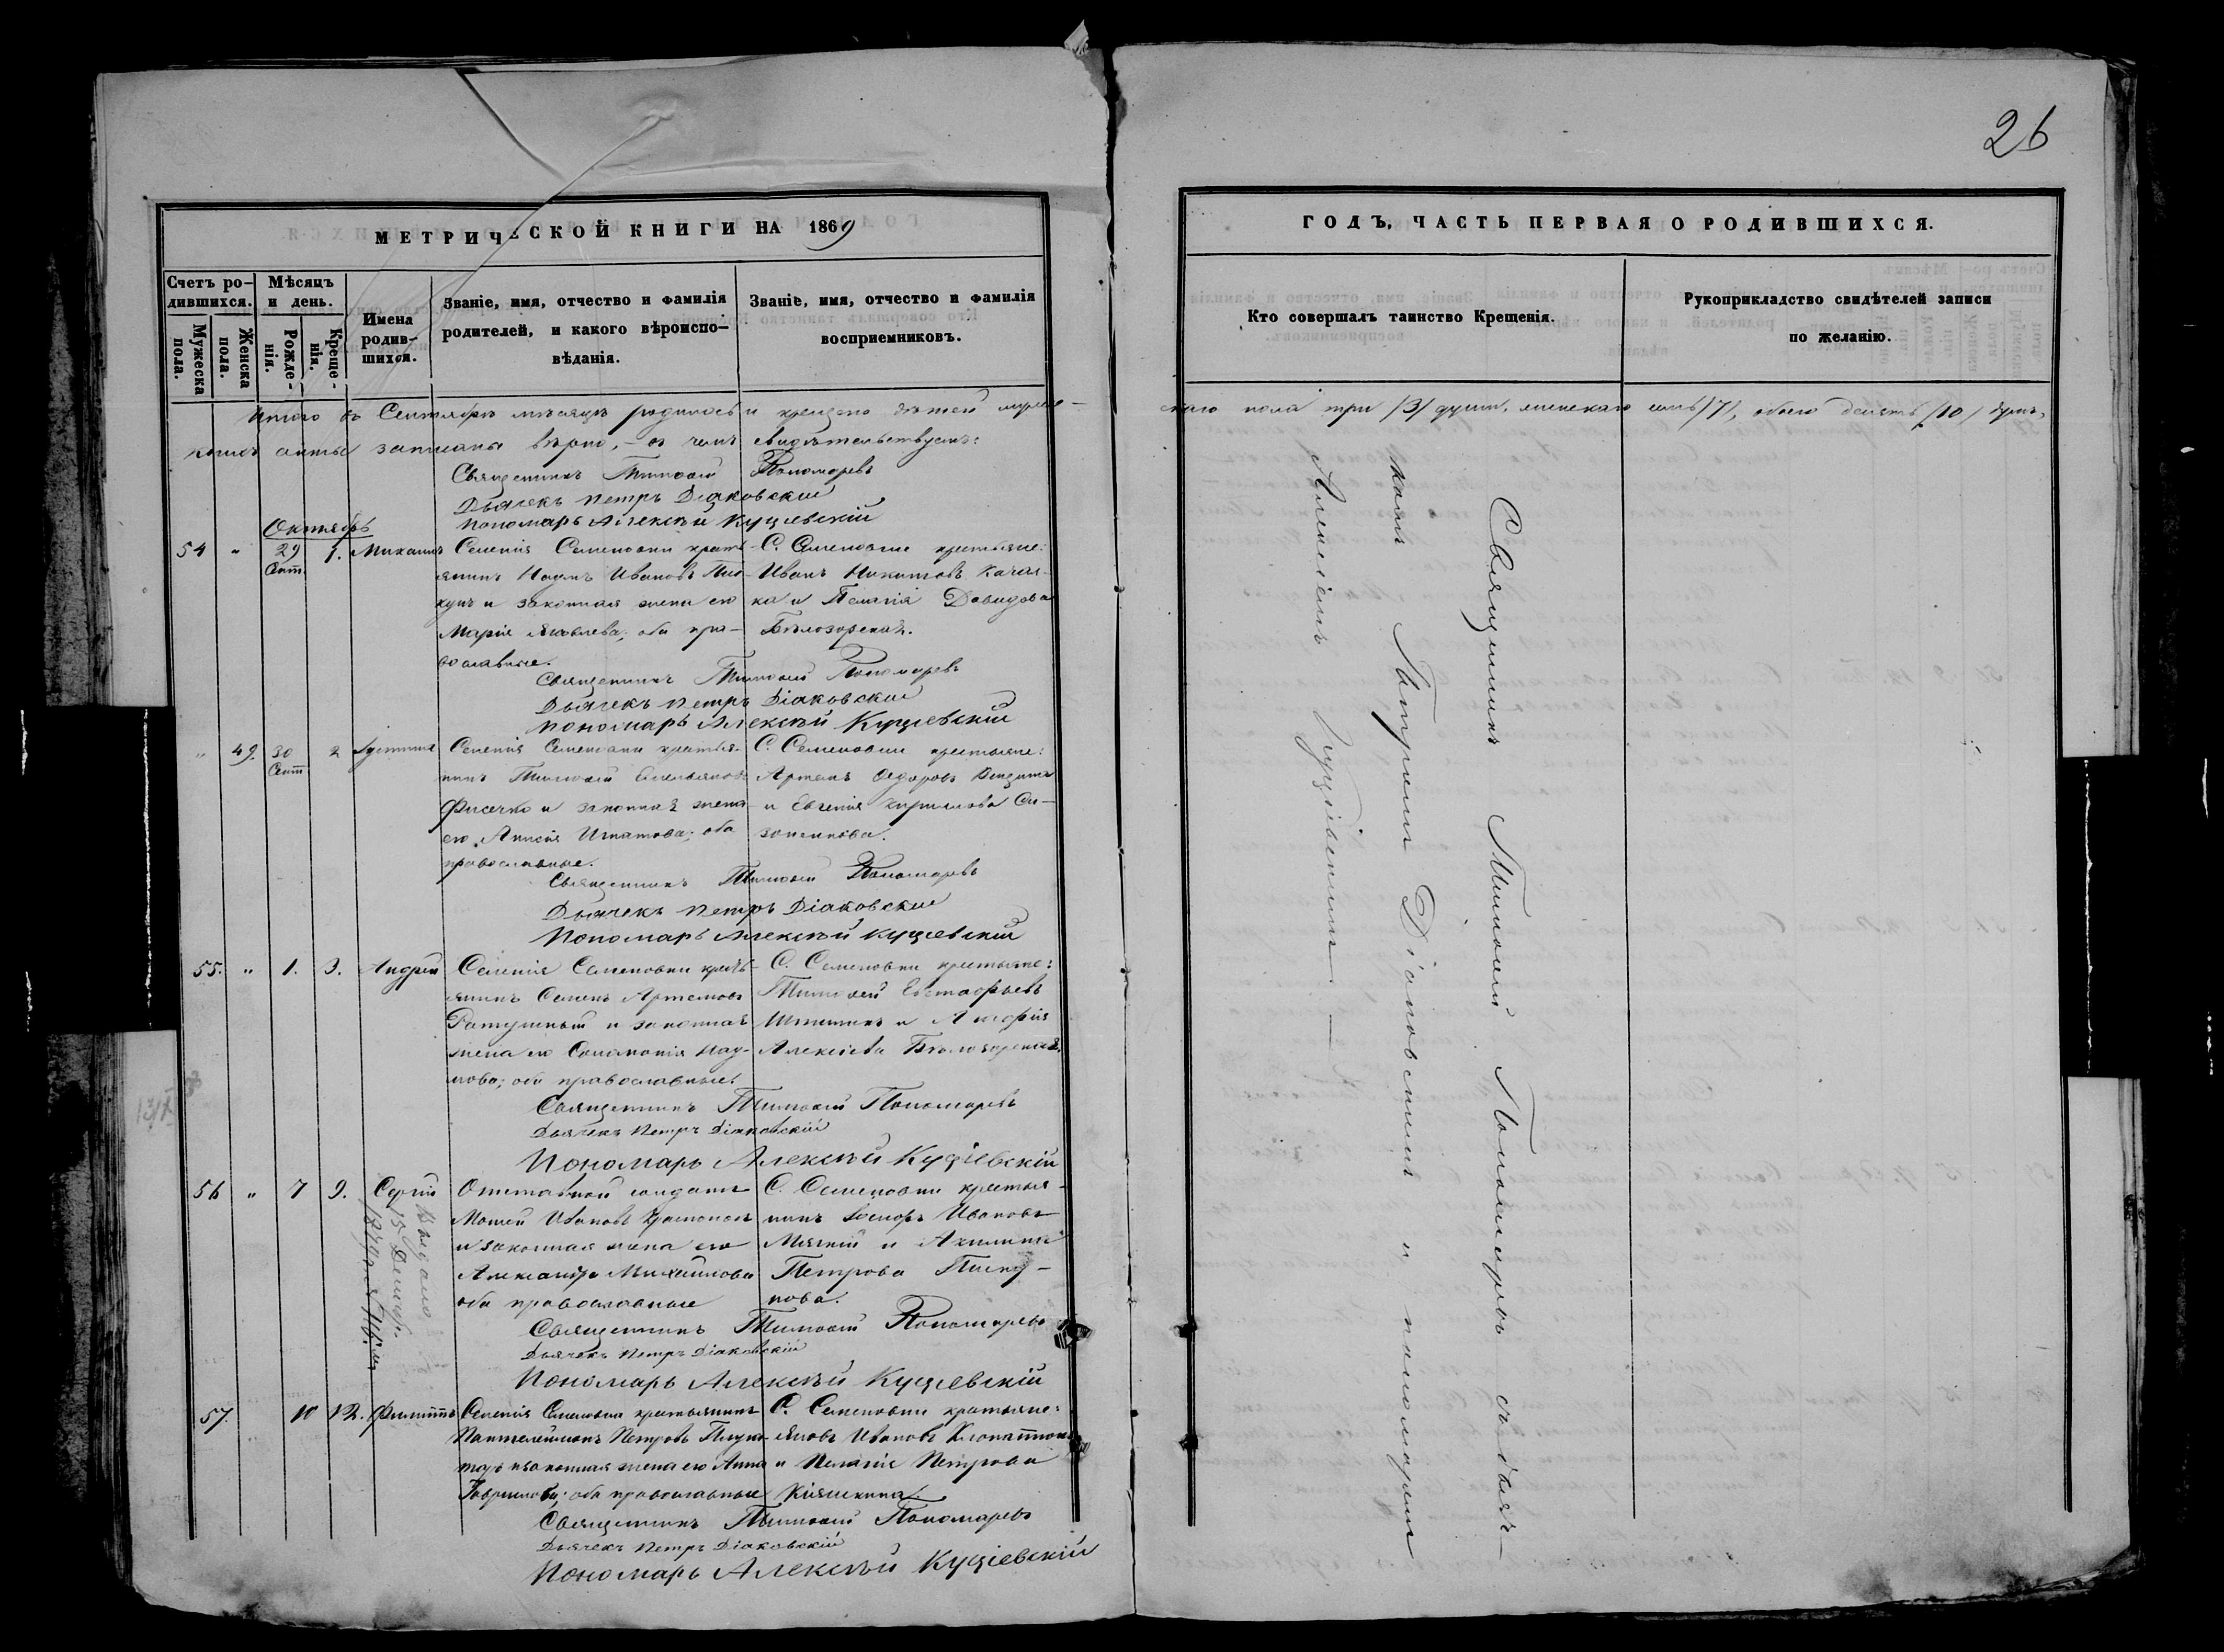 26
МЕТРИЧЕСКОЙ КНИГИ НА 1869
ГОДЪ, ЧАСТЬ ПЕРВАЯ О РОДИВШИХСЯ.
Счетъ ро-
дившихся.
Мужеска
пола.
Женска
пола.
Мѣсяцъ
и день.
Рожде-
нія.
Креще-
нія.
Имена
родив-
шихся.
Званіе, имя, отчество и фамилія
родителей, и какого вѣроиспо-
вѣданія.
Званіе, имя, отчество и фамилія
восприемниковъ.
Кто совершалъ таинство Крещенія.
Рукоприкладство свидѣтелей записи
по желанію.
Итого въ Сентябрѣ мѣсяцѣ родилось и крещено дѣтей муже-
скаго пола три /3/ душъ, женскаго семь /7/, обоего десять /10/ душъ,
коихъ акты записаны вѣрно, – въ чемъ свидѣтельствуемъ:
Священникъ Тимоѳей Пономаревъ
Дьячекъ Петръ Діаковскій
Пономарь Алексѣй Куціевскій
Октябрь
54 " 29 Сент. 1. Михаилъ
Селенія Семеновки кресть-
янинъ Наумъ Ивановъ
и законная жена его
Марія Яковлева; оба пра-
вославные.
С. Семеновки крестьяне:
Иванъ Никитовъ
и Пелагія Давидова
Бѣлозорская.
Священникъ Тимоѳей Пономаревъ
Дьячекъ Петръ Діаковскій
Пономарь Алексѣй Куціевскій
" 49. 30 Сент. 2 Іустина
Селенія Семеновки крестья-
нинъ Тимоѳей Емельяновъ
и законная жена
его Анисія Игнатова; оба
православные.
С. Семеновки крестьяне:
Артемъ Ѳедоровъ
и Евгенія Кириллова Си-
зоненкова.
Священникъ Тимоѳей Пономаревъ
Дьячекъ Петръ Діаковскій
Пономарь Алексѣй Куціевскій
55. " 1. 3. Андрей
Селенія Семеновки кресть-
янинъ Семенъ Артемовъ
Ратушный и законная
жена его Соломонія Нау-
мова; оба православные.
С. Семеновки крестьяне:
Тимоѳей Евстафьевъ
и
Алексіева Бѣлозорская.
Священникъ Тимоѳей Пономаревъ
Дьячекъ Петръ Діаковскій
Пономарь Алексѣй Куціевскій
56 " 7 9. Сергій
Выдано
15 Декаб.
Отставной солдатъ
Моисей Ивановъ
и законная жена его
Александра Михайлова
оба православные
С. Семеновки крестья-
нинъ Ивановъ
Мягкій и Акилина
Петрова
нова.
Священникъ Тимоѳей Пономаревъ
Дьячекъ Петръ Діаковскій
Пономарь Алексѣй Куціевскій
57. 10 12. Филиппъ
Селенія Семеновки крестьянинъ
Пантелеймонъ Петровъ
и законная жена его Анна
Гаврилова; оба православные
С. Семеновки крестьяне:
Яковъ Ивановъ
и Пелагія Петрова
Священникъ Тимоѳей Пономаревъ
Дьячекъ Петръ Діаковскій
Пономарь Алексѣй Куціевскій
Священникъ Тимоѳей Пономаревъ съ дьяч-
комъ Петромъ Діаковскимъ и пономаремъ
Алексіемъ Куціевскимъ. –